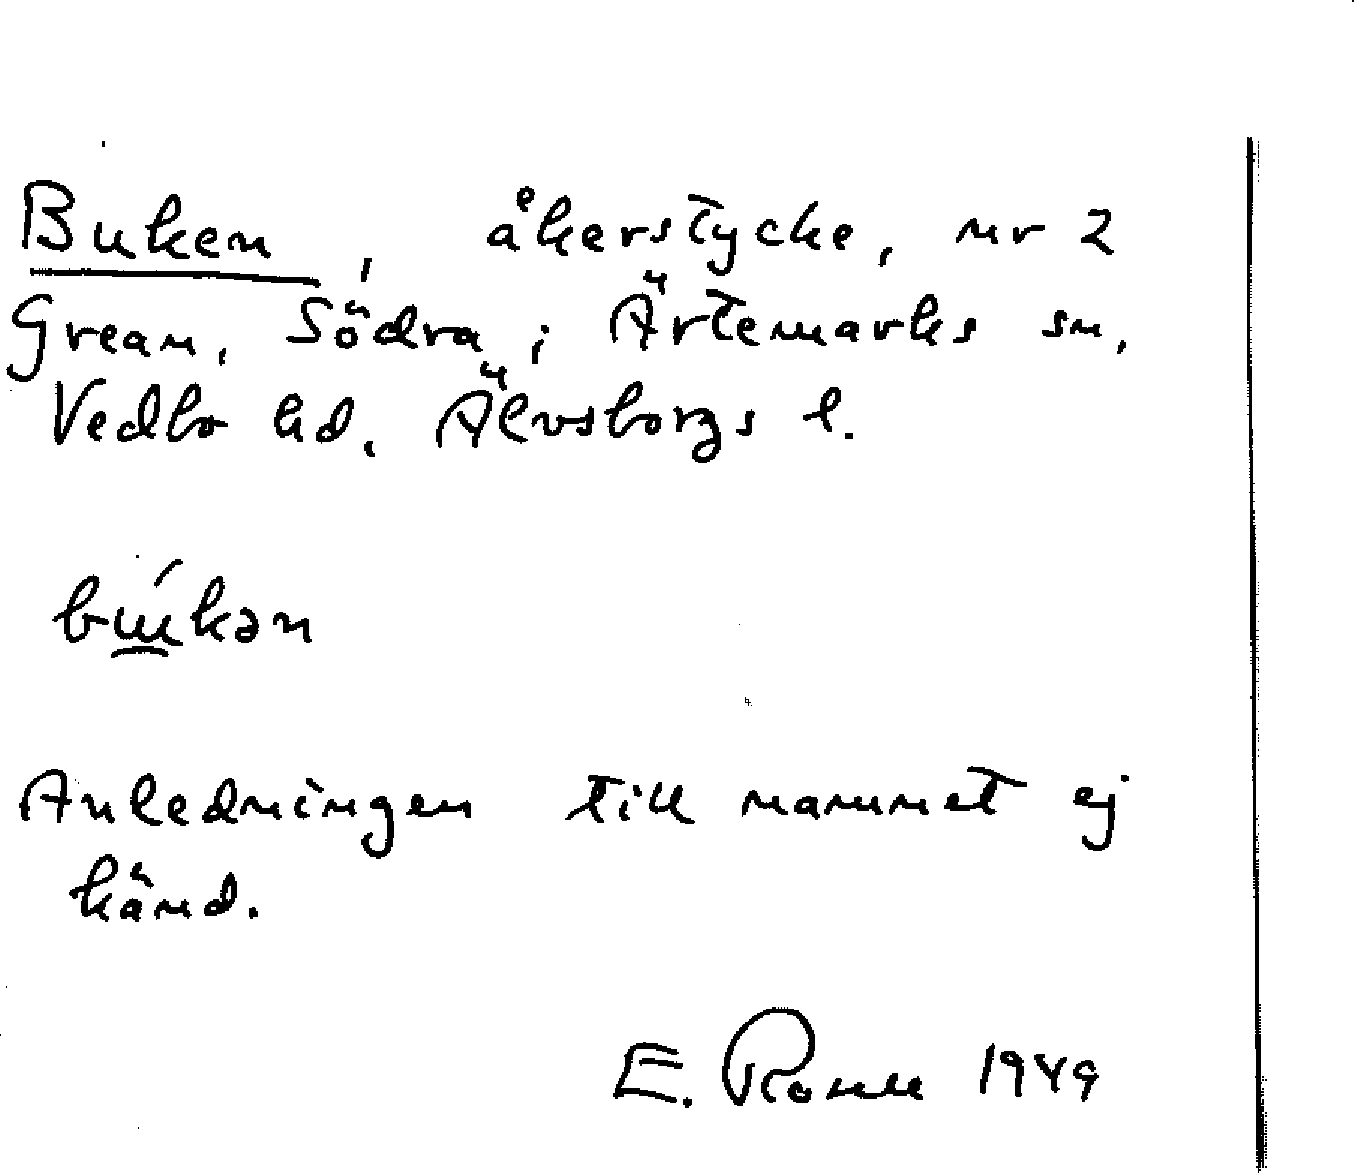 Buken, åkerstycke, nr 2
Grean, Södra i Ärtemarks sn,
Vedbo hd, Älvsborgs l.
bɯ́kən
Anledningen till namnet ej
känd.
E. 1949